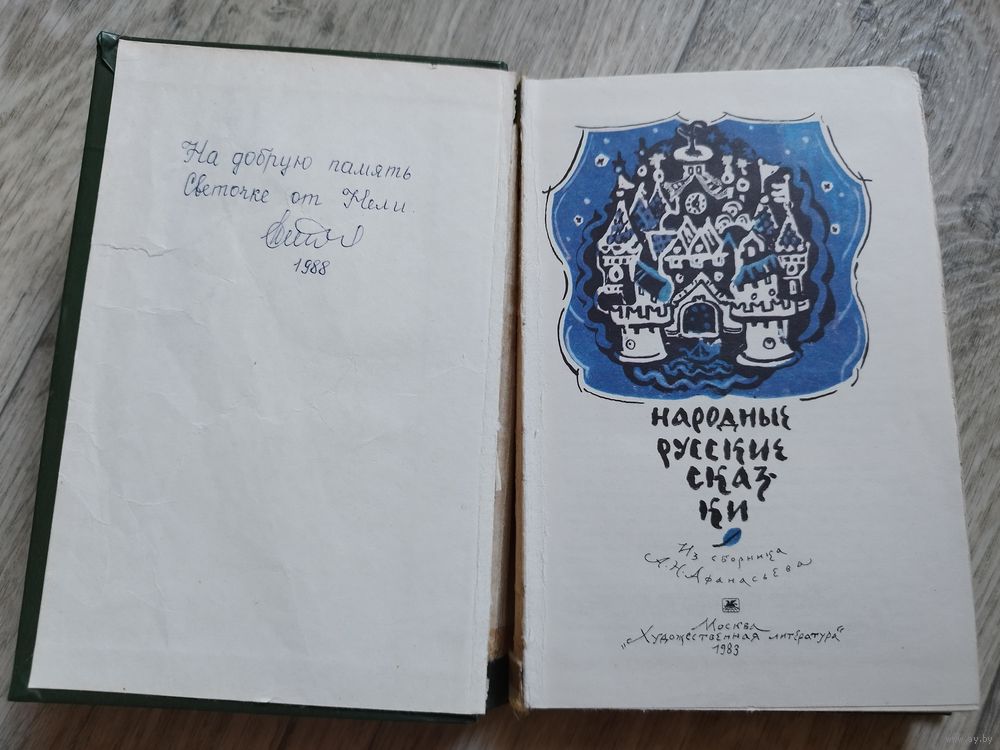 На добрую память
Светочке от Нели.
1988
НАРОДНЫЕ
РУССКИЕ
СКАЗ-
КИ
Из сборника
А.Н.Афанасьева
Москва
„Художественная литература“
1983
www.ay.by